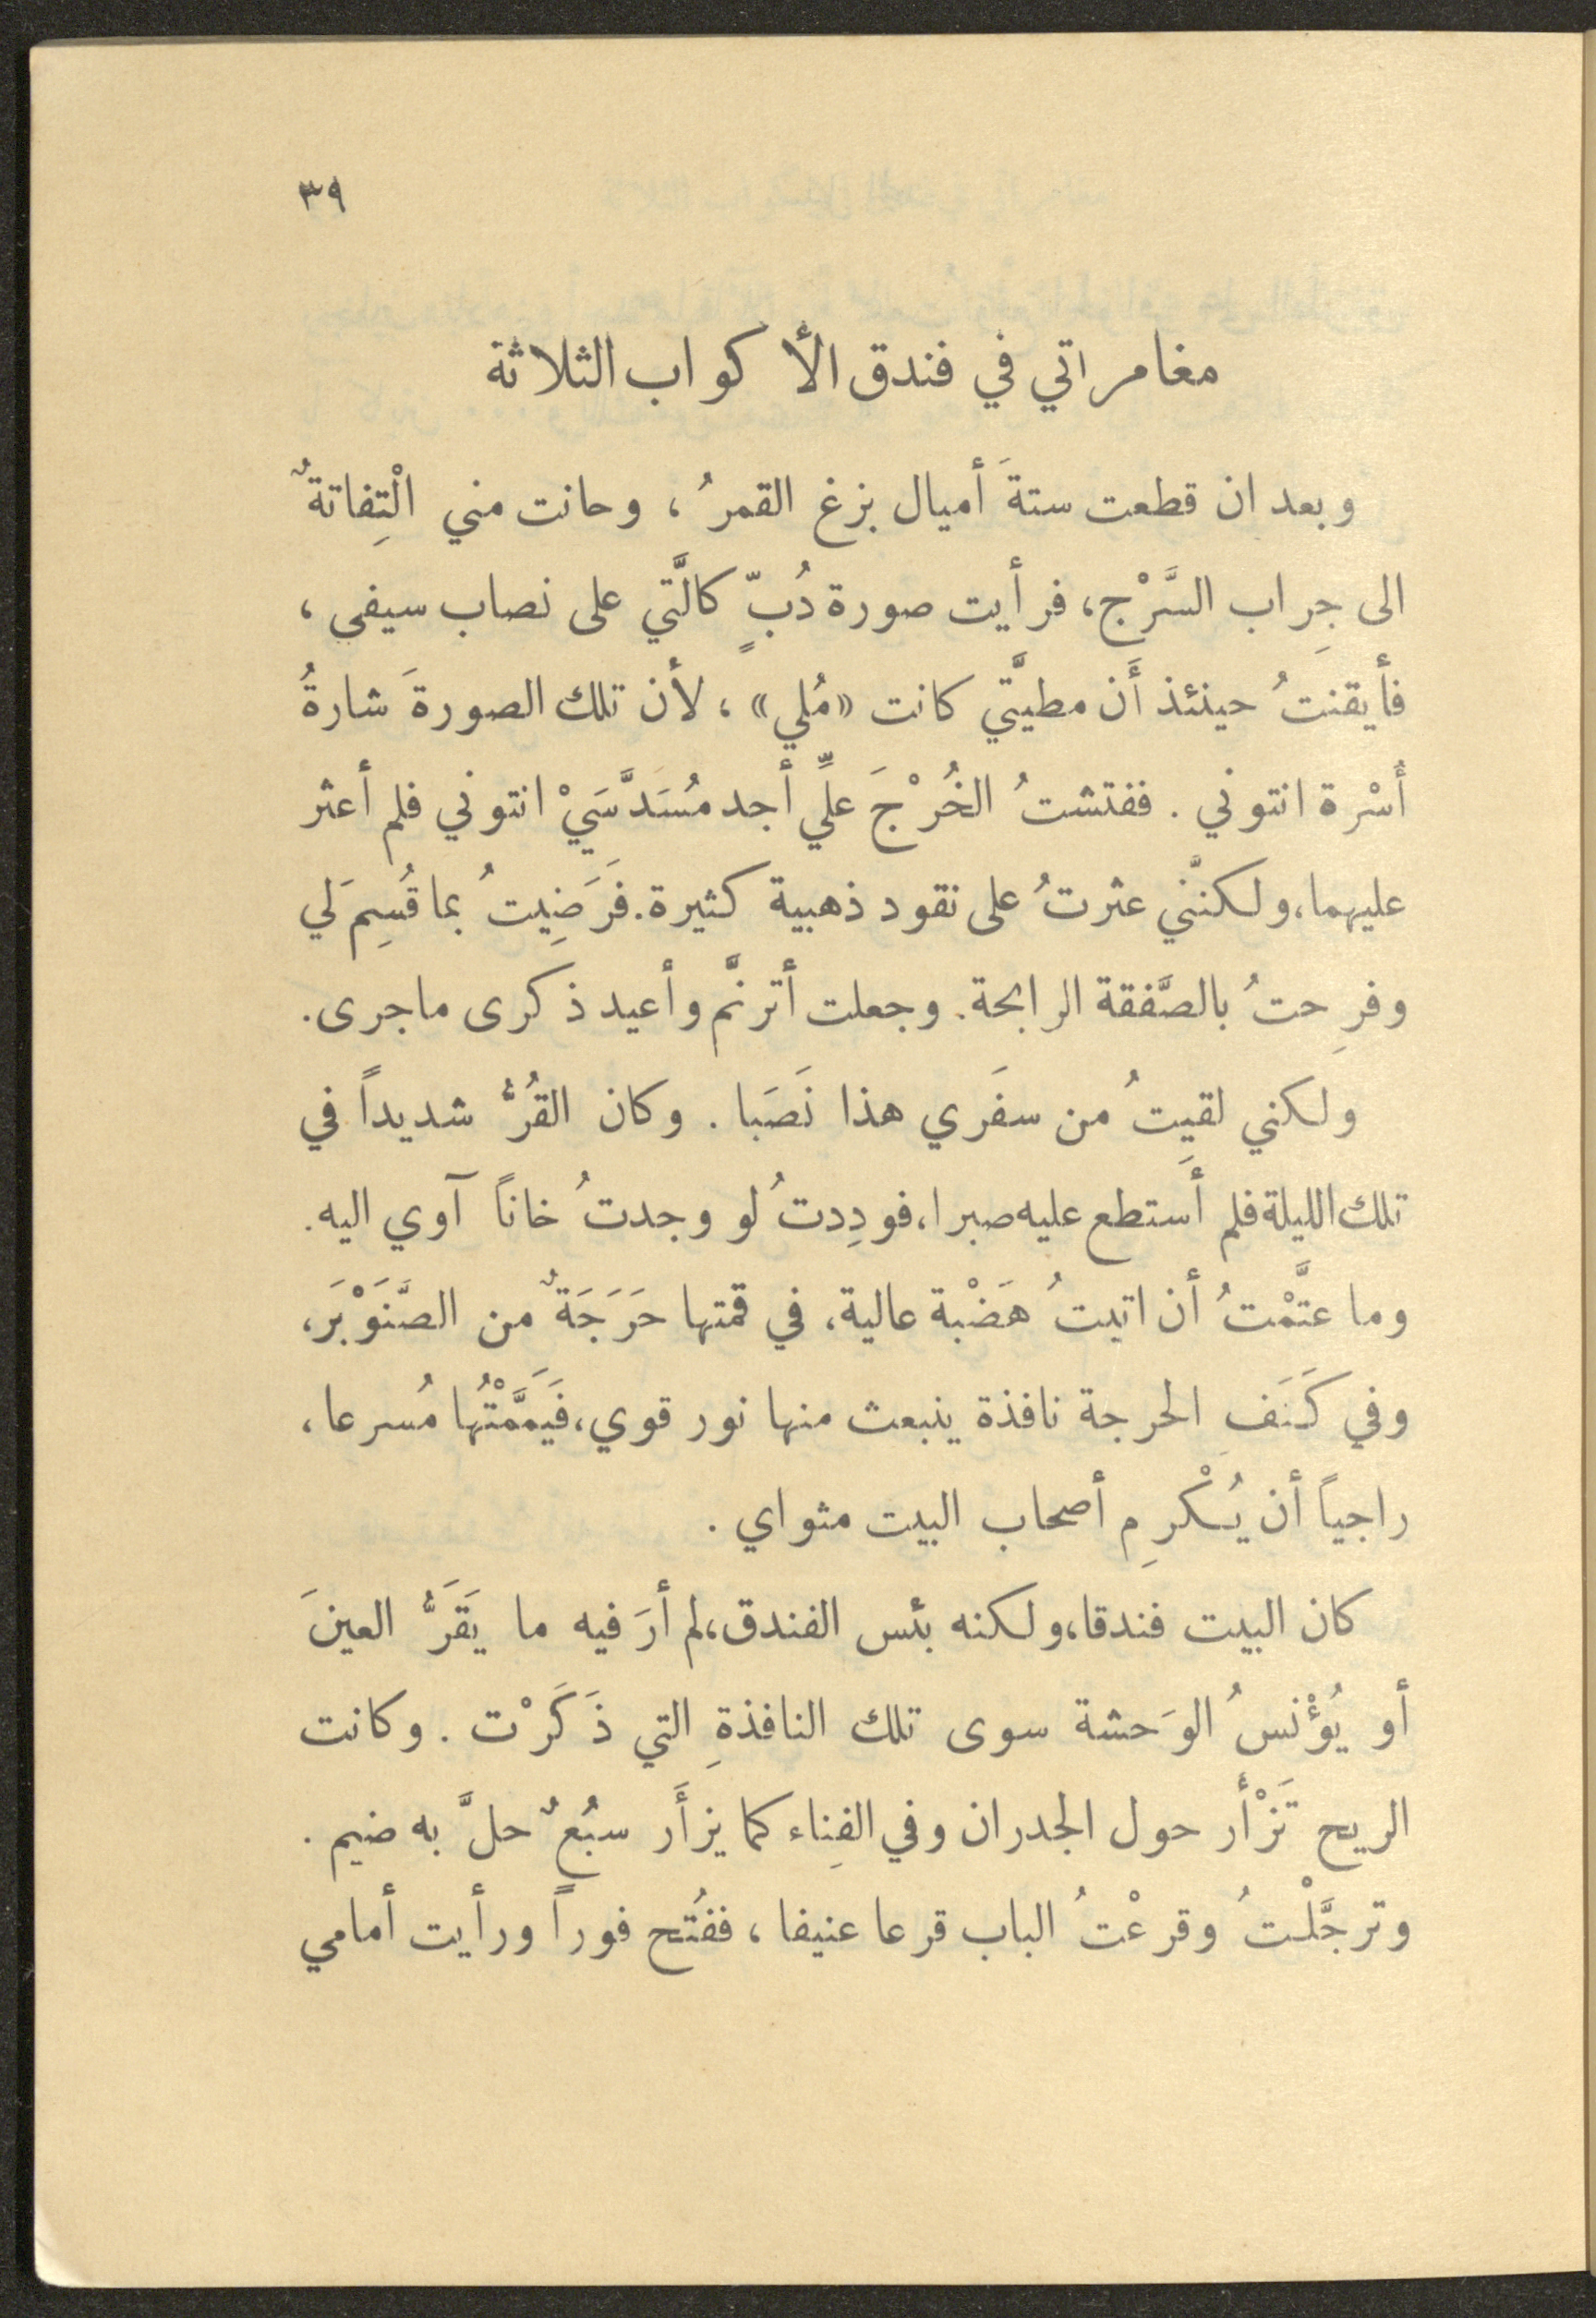 ٣٩
مغامراتي في فندق الأكواب الثلاثة
وبعد ان قطعت ستةَ أميال بزغ القمرُ، وحانت مني الْتِفاتةٌ
الى جِراب السَّرْج، فرأيت صورة دُبٍّ كالَّتي على نصاب سيفي،
فأيقنتُ حينئذ أَن مطيَّتي كانت «مُلي»، لأن تلك الصورةَ شارةُ
أُسْرة انتوني. ففتشتُ الخُرْجَ علِّي أجد مُسَدَّسَيْ انتوني فلم أعثر
عليهما، ولكنَّني عثرتُ على نقود ذهبية كثيرة. فَرَضِيتُ بما قُسِمَ لي
وفرِحتُ بالصَّفقة الرابحة. وجعلت أترنَّم وأعيد ذكرى ماجرى.
ولكني لقيِتُ من سفَري هذا نَصَبا. وكان القُرُّ شديداً في
تلك الليلة فلم أَستطع عليه صبرا، فودِدتُ لو وجدتُ خاناً آوي اليه.
وما عتَّمْتُ أن اتيتُ هَضْبة عالية، في قمتها حَرَجَةٌ من الصَّنَوْبَر،
وفي كَنَفِ الحرجة نافذة ينبعث منها نور قوي، فَيَمَّمْتُها مُسرعا،
راجياً أن يُكْرِم أصحاب البيت مثواي.
كان البيت فندقا، ولكنه بئس الفندق، لم أرَ فيه ما يَقَرُّ العينَ
أو يُؤْنسُ الوَحشة سوى تلك النافذةِ التي ذَكَرْت. وكانت
الريح تَزْأَر حول الجدران وفي الفِناء كما يزأَر سبُعٌ حلَّ به ضيم.
وترجَّلْتُ وقرعْتُ الباب قرعا عنيفا، ففُتح فوراً ورأيت أمامي